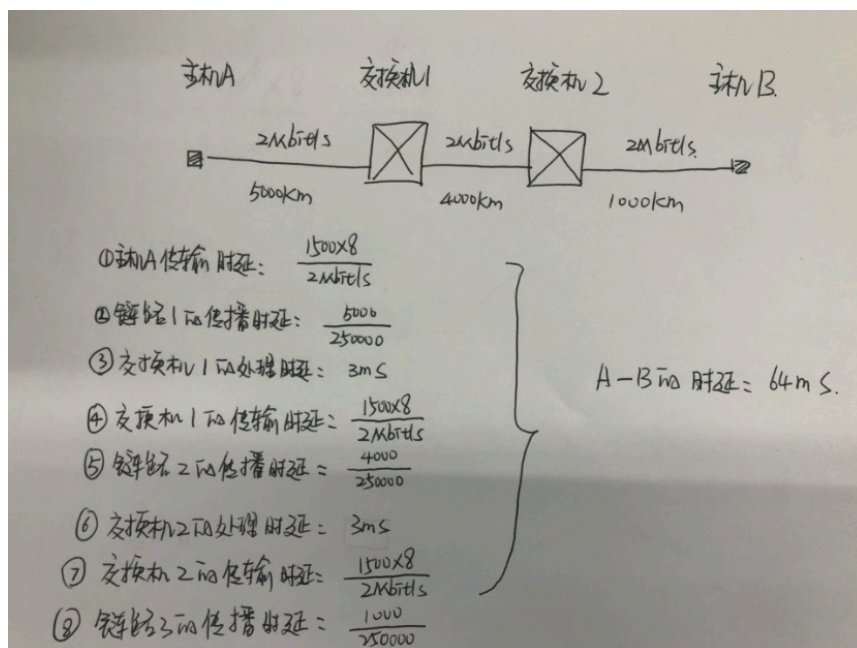 主机A 交换机1 交换机2 主机B.
2Mbit/s 2Mbit/s 2Mbit/s.
5000km 4000km 1000km
①主机A传输时延: 1500×8 / 2Mbit/s
②链路1的传播时延: 5000 / 250000
③交换机1的处理时延: 3ms
④交换机1的传输时延= 1500×8 / 2Mbit/s
⑤链路2的传播时延= 4000 / 250000
⑥交换机2的处理时延: 3ms
⑦交换机2的传输时延= 1500×8 / 2Mbit/s
⑧链路3的传播时延= 1000 / 250000
A-B的时延= 64ms.